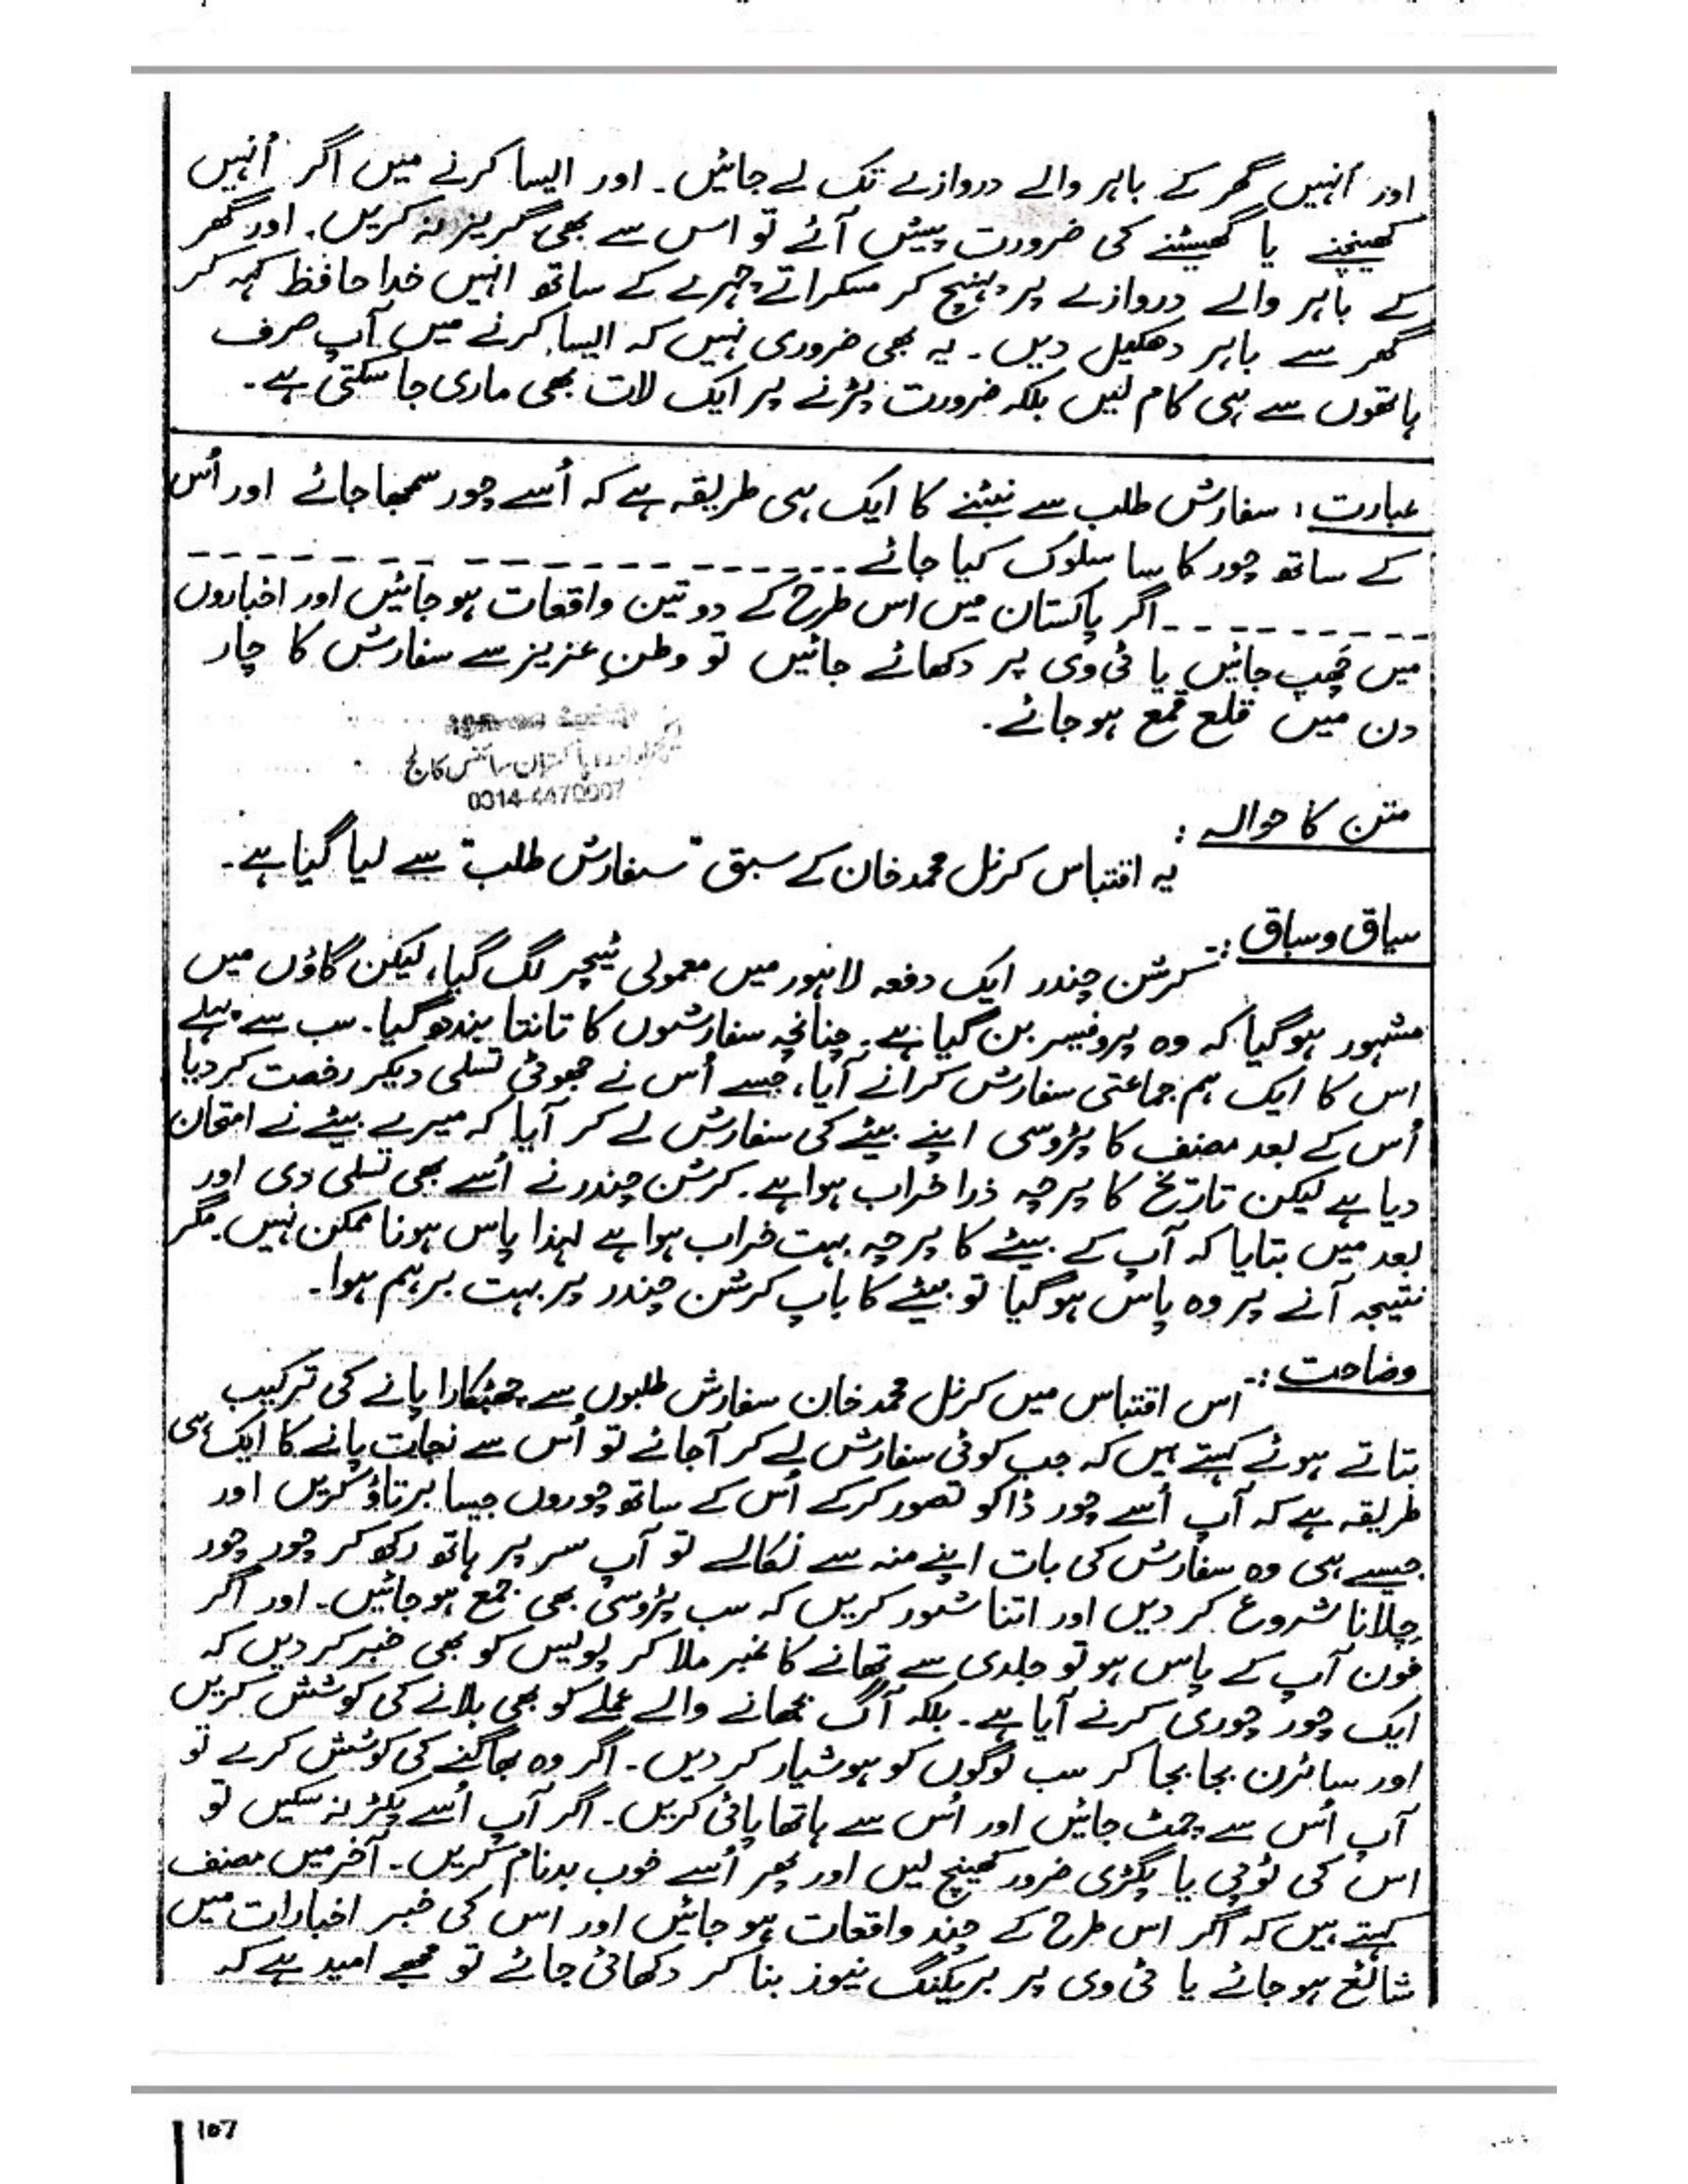 اور اُنہیں گھر کے باہر والے دروازے تک لے جائیں۔ اور ایسا کرنے میں اگر اُنہیں
کھینچنے یا گھسیٹنے کی ضرورت پیش آئے تو اس سے بھی گریز نہ کریں۔ اور گھر
کے باہر والے دروازے پر پہنچ کر مسکراتے چہرے کے ساتھ انہیں خدا حافظ کہہ کر
گھر سے باہر دھکیل دیں۔ یہ بھی ضروری نہیں کہ ایسا کرنے میں آپ صرف
ہاتھوں سے ہی کام لیں بلکہ ضرورت پڑنے پر ایک لات بھی ماری جا سکتی ہے۔
عبارت: سفارش طلب سے نبٹنے کا ایک ہی طریقہ ہے کہ اُسے چور سمجھا جائے اور اُس
کے ساتھ چور کا سا سلوک کیا جائے ---------------
---------اگر پاکستان میں اس طرح کے دو تین واقعات ہو جائیں اور اخباروں
میں چھپ جائیں یا ٹی وی پر دکھائے جائیں تو وطنِ عزیز سے سفارش کا چار
دن میں قلع قمع ہو جائے۔
پاکستان سائنس کالج
متن کا حوالہ:
یہ اقتباس کرنل محمد خان کے سبق "سفارش طلب" سے لیا گیا ہے۔
سیاق و سباق:
کرشن چندر ایک دفعہ لاہور میں معمولی ٹیچر لگ گیا، لیکن گاؤں میں
مشہور ہو گیا کہ وہ پروفیسر بن گیا ہے۔ چنانچہ سفارشوں کا تانتا بندھ گیا۔ سب سے پہلے
اس کا ایک ہم جماعتی سفارش کرانے آیا، جسے اُس نے جھوٹی تسلی دیکر رخصت کر دیا
اُس کے بعد مصنف کا پڑوسی اپنے بیٹے کی سفارش لے کر آیا کہ میرے بیٹے نے امتحان
دیا ہے لیکن تاریخ کا پرچہ ذرا خراب ہوا ہے۔ کرشن چندر نے اُسے بھی تسلی دی اور
بعد میں بتایا کہ آپ کے بیٹے کا پرچہ بہت خراب ہوا ہے لہذا پاس ہونا ممکن نہیں۔ مگر
نتیجہ آنے پر وہ پاس ہو گیا تو بیٹے کا باپ کرشن چندر پر بہت برہم ہوا۔
وضاحت:-
اس اقتباس میں کرنل محمد خان سفارش طلبوں سے چھٹکارا پانے کی ترکیب
بتاتے ہوئے کہتے ہیں کہ جب کوئی سفارش لے کر آجائے تو اُس سے نجات پانے کا ایک ہی
طریقہ ہے کہ آپ اُسے چور ڈاکو تصور کر کے اُس کے ساتھ چوروں جیسا برتاؤ کریں اور
جیسے ہی وہ سفارش کی بات اپنے منہ سے نکالے تو آپ سر پر ہاتھ رکھ کر چور چور
چِلّانا شروع کر دیں اور اتنا شور کریں کہ سب پڑوسی بھی جمع ہو جائیں۔ اور اگر
فون آپ کے پاس ہو تو جلدی سے تھانے کا نمبر ملا کر پولیس کو بھی خبر کر دیں کہ
ایک چور چوری کرنے آیا ہے۔ بلکہ آگ بجھانے والے عملے کو بھی بلانے کی کوشش کریں
اور سائرن بجا بجا کر سب لوگوں کو ہوشیار کر دیں۔ اگر وہ بھاگنے کی کوشش کرے تو
آپ اُس سے چمٹ جائیں اور اُس سے ہاتھا پائی کریں۔ اگر آپ اُسے پکڑ نہ سکیں تو
اس کی ٹوپی یا پگڑی ضرور کھینچ لیں اور پھر اُسے خوب بدنام کریں۔ آخر میں مصنف
کہتے ہیں کہ اگر اس طرح کے چند واقعات ہو جائیں اور اس کی خبر اخبارات میں
شائع ہو جائے یا ٹی وی پر بریکنگ نیوز بنا کر دکھائی جائے تو مجھے امید ہے کہ
107